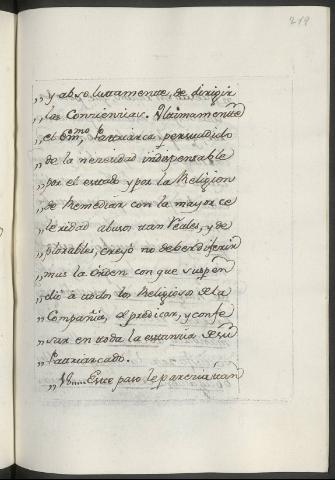 219
„ y absolutamente, de dirigir
„ las Conciencias. Ultimamente
„ el Em.mo Patriarca persuadido
„ de la necesidad indispensable
„ por el estado y por la Religion
„ de Remediar con la mayor ce
„ leridad abusos tan Reales, y de
„ plorables, creyó no deber diferir
„ mas la orden con que suspen
„ dió a todos los Religiosos de la
„ Compañia, el predicar, y confe
„ sar en toda la estancia de su
„ Patriarcado.
„ Este paso le parecia tan